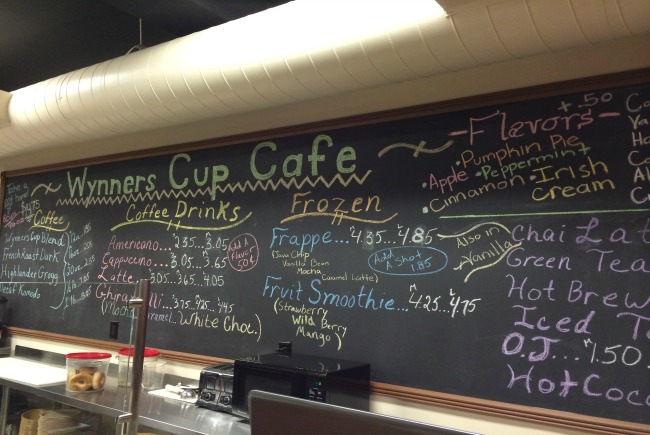 Wynners Cup Cafe
Coffee
Wynners Cup Blend
French Roast Dark
Highlander Grogg
Decaf Komodo
Coffee Drinks
Americano... 2.35... 3.05
Cappuccino... 3.05... 3.65
Latte... 3.05... 3.65... 4.05
3.75... 4.25... 4.45
(Mocha, Caramel... White Choc.)
Add A
Flavor
50¢
Frozen
Frappe... 4.35... 4.85
(Java Chip
Vanilla Bean
Mocha
Caramel Latte)
Add a Shot
1.85
Also in
Vanilla
Fruit Smoothie... M 4.25... L 4.75
(Strawberry
Wild Berry
Mango)
-Flavors-
+.50
Pumpkin Pie
Apple
Peppermint
Cinnamon
Irish
Cream
Chai Lat
Green Tea
Hot Brew
Iced T
O.J.... 1.50
Hot Coco